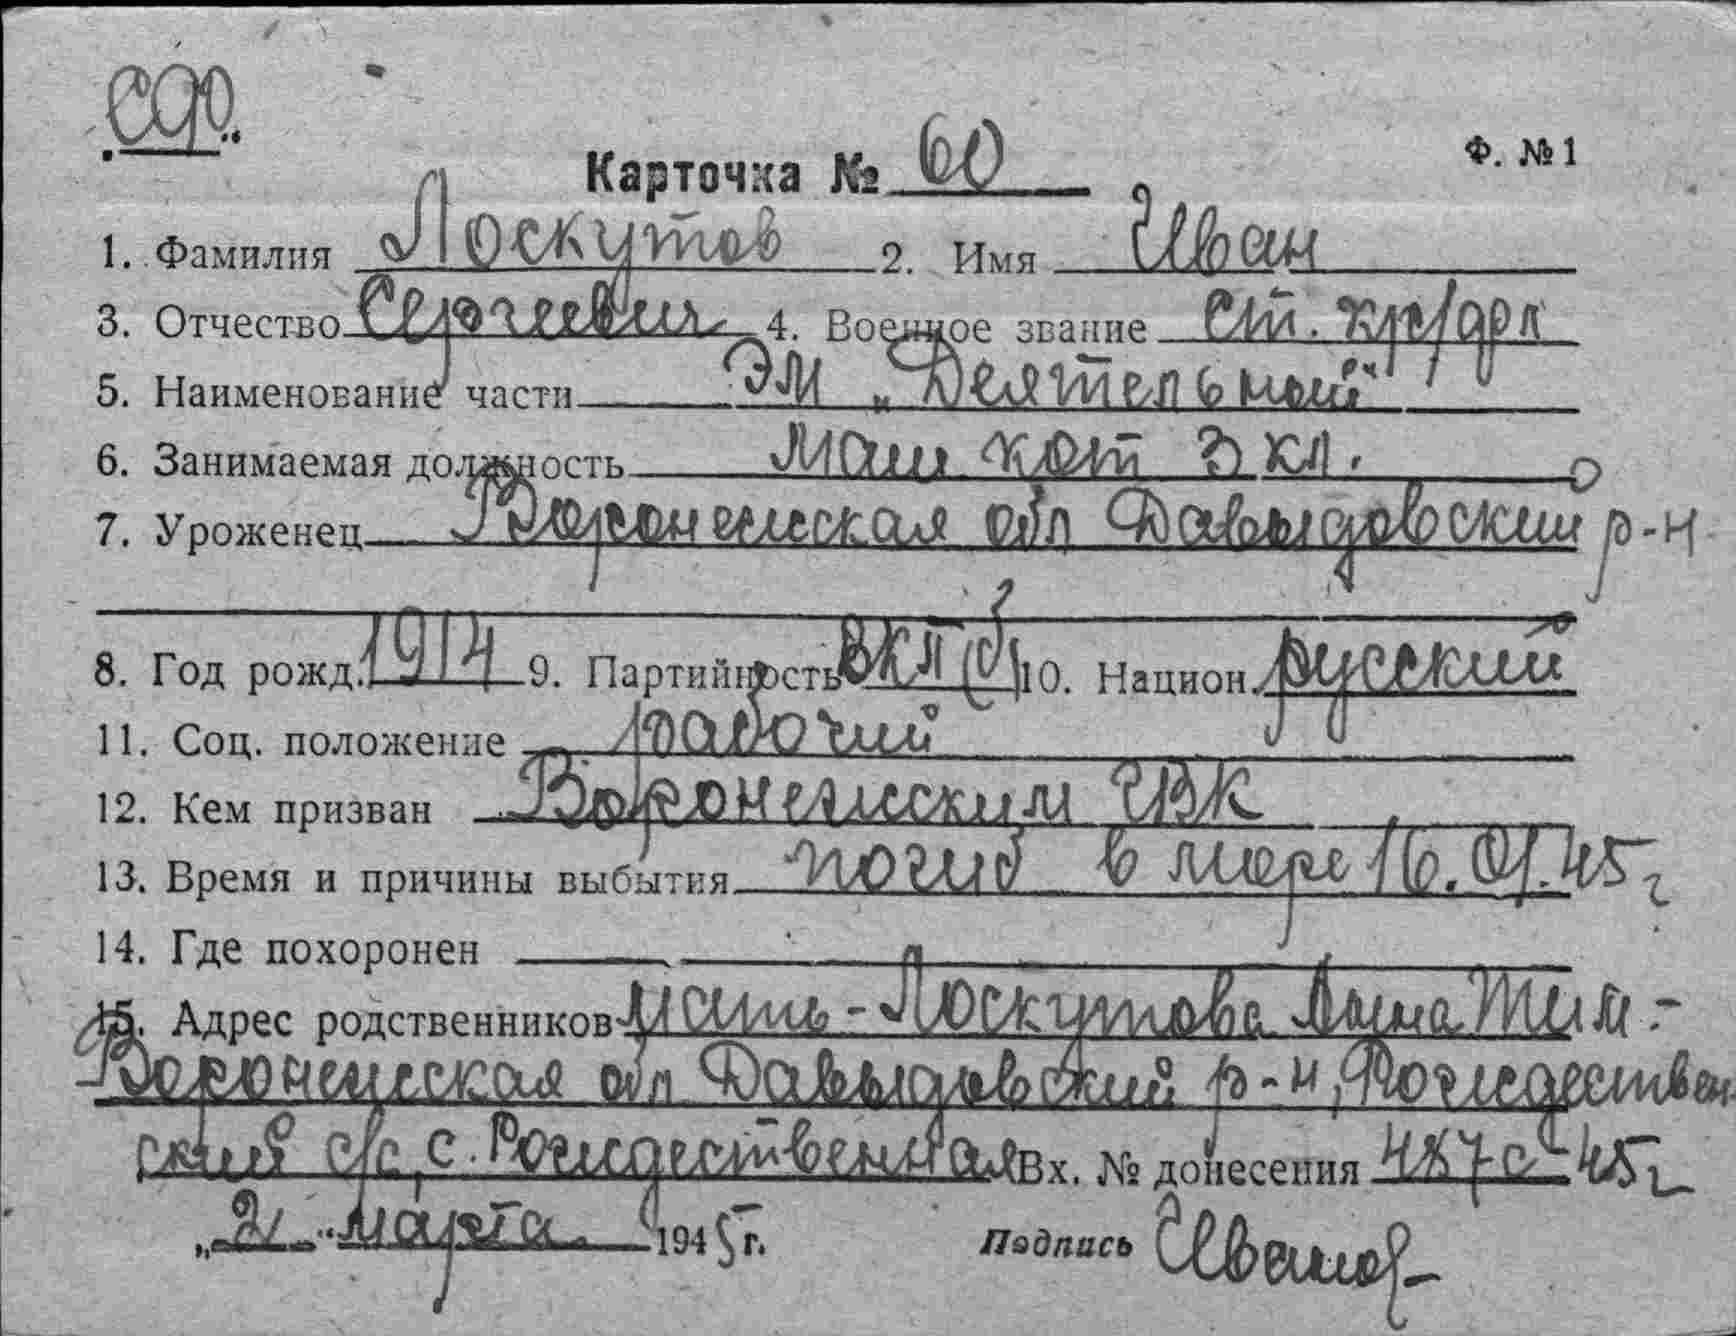 сдр.
Карточка № 60
Ф. № 1
1. Фамилия Лоскутов 2. Имя Иван
3. Отчество Сергеевич 4. Военное звание ст. кр/арм
5. Наименование части ЭМ „Деятельный"
6. Занимаемая должность маш. кот 3 кл.
7. Уроженец Воронежская обл Давыдовский р-н
8. Год рожд. 1914 9. Партийность ВКП(б) 10. Национ. русский
11. Соц. положение рабочий
12. Кем призван Воронежским ГВК
13. Время и причины выбытия погиб в море 16.01.45г
14. Где похоронен
15. Адрес родственников мать - Лоскутова Анна Тим.-
Воронежская обл Давыдовский р-н, Рождествен-
ский с/с, с. Рождественная Вх. № донесения 487с-45г
„21" марта 1945г. Подпись Иванов